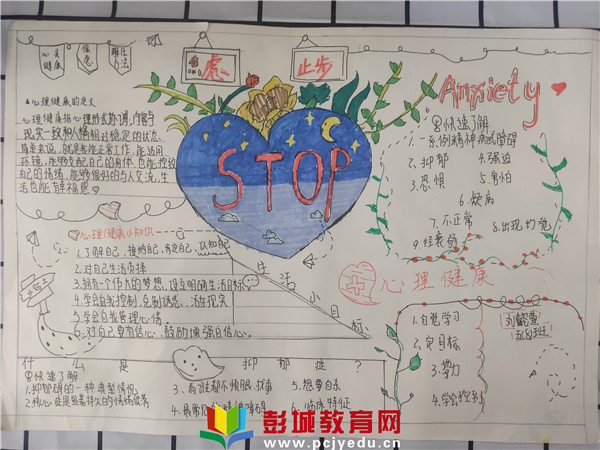 心灵
健康
焦虑
解压
方法
虑
止步
Anxiety
STOP
▲心理健康的定义
心理健康指心理形式协调,内容与
现实一致和人格相对稳定的状态.
简单来说,就是有能正常工作,能适用
环境,能够支配自己的身体,也能控制
自己的情绪,能够很好的与人交流,生
活也能有幸福感
心理健康小知识
1.了解自己,接纳自己,肯定自己,认知自己
2.对自己生活负责
3.拥有一个伟大的梦想,设立明确生活目标
4.学会自我控制,克制诱惑,活在现实
5.学会自我管理心情
6.对自己要有信心,鼓励增强自信心.
快速了解
1.一系列精神病或障碍
2.抑郁
3.恐惧
4.强迫
5.害怕
6.疑病
7.不正常
8.出现幻觉
9.经衰弱
心理健康
生活小目标
1.自觉学习
2.定目标
3.努力
4.学会控制
什么是抑郁症?
快速了解
1.抑郁症的一种典型情况
2.核心症是显著持久的情绪低落
3.看谁都不顺眼
5.想要自杀
6.临床特征
彭城教育网
www.pcjyedu.cn